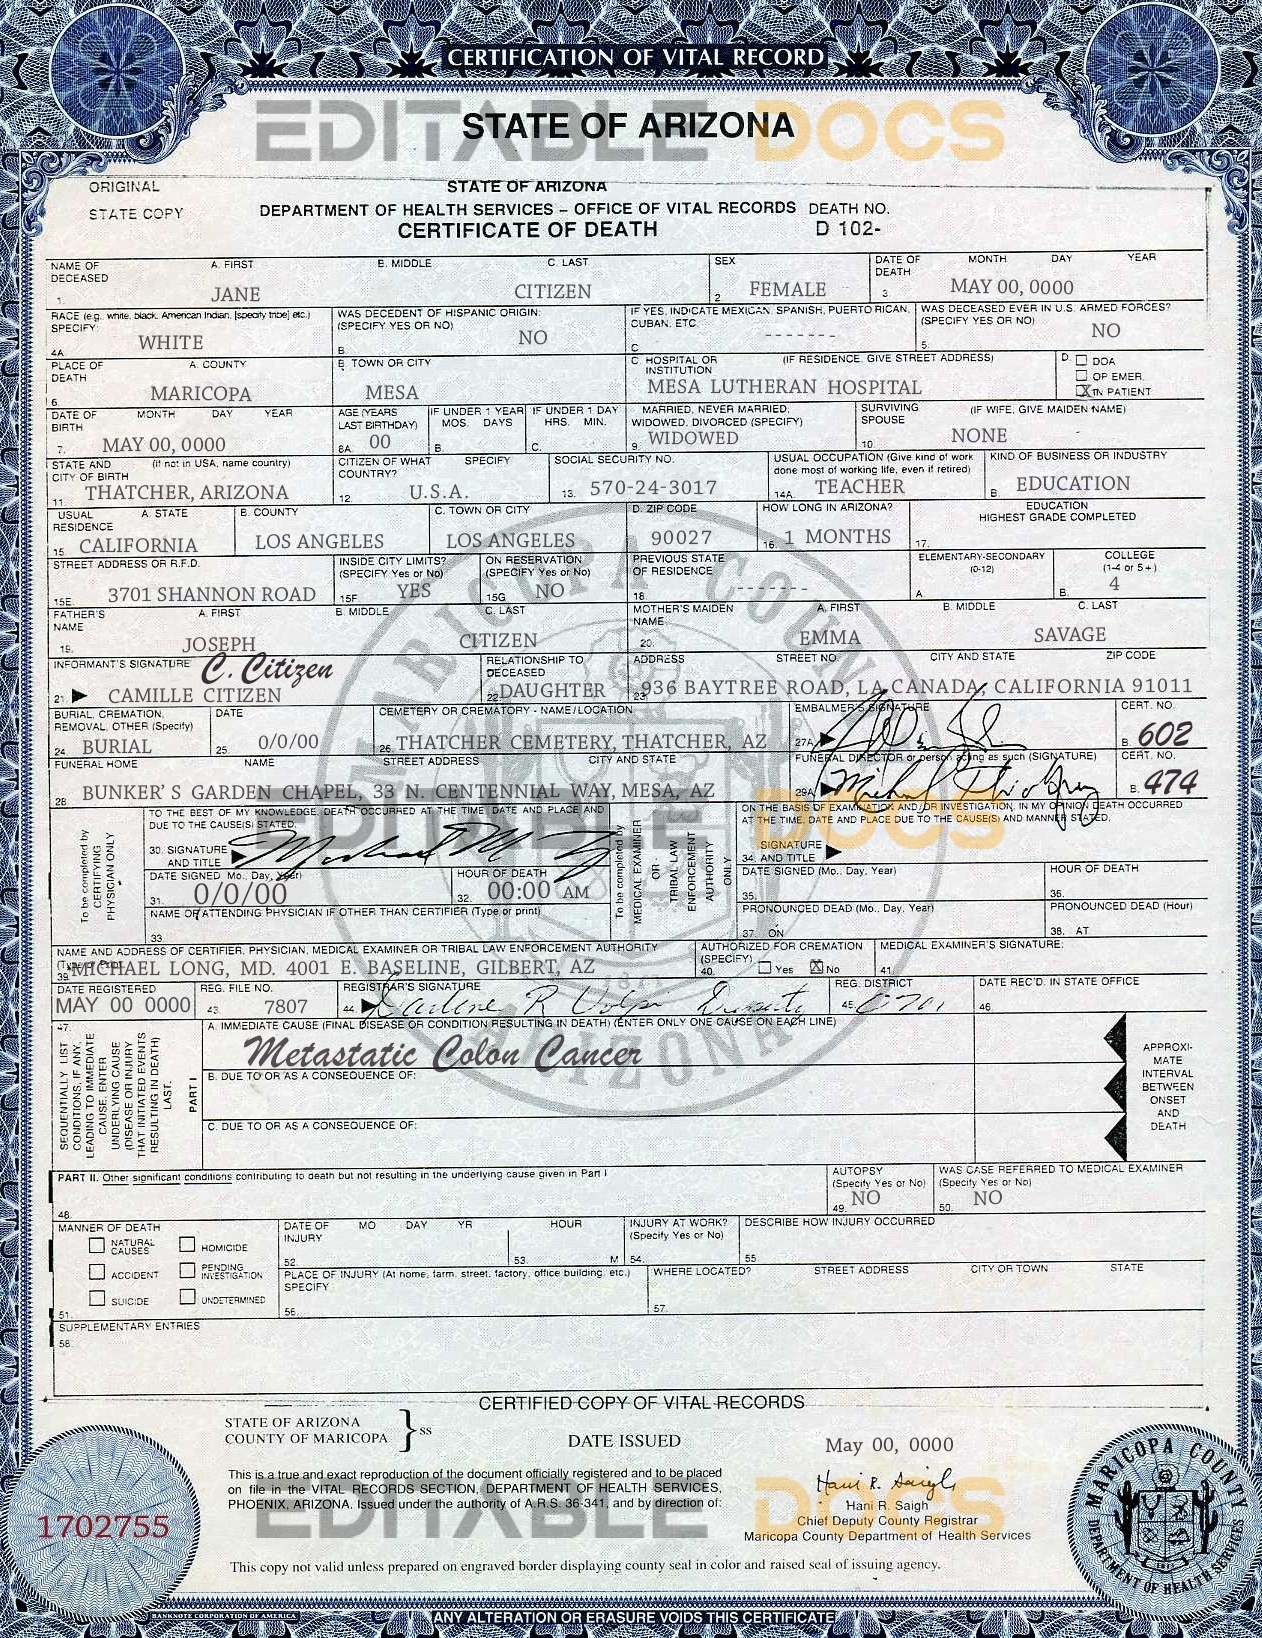 CERTIFICATION OF VITAL RECORD
EDITABLE DOCS
STATE OF ARIZONA
ORIGINAL
STATE COPY
STATE OF ARIZONA
DEPARTMENT OF HEALTH SERVICES – OFFICE OF VITAL RECORDS DEATH NO.
CERTIFICATE OF DEATH D 102-
NAME OF DECEASED A. FIRST B. MIDDLE C. LAST SEX DATE OF DEATH MONTH DAY YEAR
1. JANE CITIZEN 2 FEMALE 3 MAY 00, 0000
RACE (e.g. white, black, American Indian, [specify tribe] etc.) SPECIFY: WAS DECEDENT OF HISPANIC ORIGIN: (SPECIFY YES OR NO) IF YES, INDICATE MEXICAN, SPANISH, PUERTO RICAN, CUBAN, ETC WAS DECEASED EVER IN U.S. ARMED FORCES? (SPECIFY YES OR NO)
4A WHITE B NO C ------- 5. NO
PLACE OF DEATH A. COUNTY B. TOWN OR CITY C. HOSPITAL OR INSTITUTION (IF RESIDENCE, GIVE STREET ADDRESS) D. DOA OP EMER. X IN PATIENT
6 MARICOPA MESA MESA LUTHERAN HOSPITAL
DATE OF BIRTH MONTH DAY YEAR AGE (YEARS LAST BIRTHDAY) IF UNDER 1 YEAR MOS. DAYS IF UNDER 1 DAY HRS. MIN. MARRIED, NEVER MARRIED, WIDOWED, DIVORCED (SPECIFY) SURVIVING SPOUSE (IF WIFE, GIVE MAIDEN NAME)
7. MAY 00, 0000 8A. 00 B. C. 9. WIDOWED 10. NONE
STATE AND CITY OF BIRTH (if not in USA, name country) CITIZEN OF WHAT COUNTRY? SPECIFY SOCIAL SECURITY NO. USUAL OCCUPATION (Give kind of work done most of working life, even if retired) KIND OF BUSINESS OR INDUSTRY
11. THATCHER, ARIZONA 12. U.S.A. 13. 570-24-3017 14A. TEACHER B EDUCATION
USUAL RESIDENCE A. STATE B. COUNTY C. TOWN OR CITY D. ZIP CODE HOW LONG IN ARIZONA? EDUCATION HIGHEST GRADE COMPLETED
15. CALIFORNIA LOS ANGELES LOS ANGELES 90027 16. 1 MONTHS 17.
STREET ADDRESS OR R.F.D. INSIDE CITY LIMITS? (SPECIFY Yes or No) ON RESERVATION (SPECIFY Yes or No) PREVIOUS STATE OF RESIDENCE ELEMENTARY-SECONDARY (0-12) COLLEGE (1-4 or 5+)
15E 3701 SHANNON ROAD 15F YES 15G NO 18. ------- A. B. 4
FATHER'S NAME A. FIRST B. MIDDLE C. LAST MOTHER'S MAIDEN NAME A. FIRST B. MIDDLE C. LAST
19. JOSEPH CITIZEN 20. EMMA SAVAGE
INFORMANT'S SIGNATURE C. Citizen RELATIONSHIP TO DECEASED ADDRESS STREET NO. CITY AND STATE ZIP CODE
21. CAMILLE CITIZEN 22. DAUGHTER 23. 936 BAYTREE ROAD, LA CANADA, CALIFORNIA 91011
BURIAL, CREMATION, REMOVAL, OTHER (Specify) DATE CEMETERY OR CREMATORY - NAME/LOCATION EMBALMER'S SIGNATURE CERT. NO.
24. BURIAL 25. 0/0/00 26. THATCHER CEMETERY, THATCHER, AZ 27A B. 602
FUNERAL HOME NAME STREET ADDRESS CITY AND STATE FUNERAL DIRECTOR or person acting as such (SIGNATURE) CERT. NO.
28. BUNKER'S GARDEN CHAPEL, 33 N. CENTENNIAL WAY, MESA, AZ 29A B. 474
EDITABLE DOCS
To be completed by CERTIFYING PHYSICIAN ONLY
TO THE BEST OF MY KNOWLEDGE, DEATH OCCURRED AT THE TIME, DATE AND PLACE AND DUE TO THE CAUSE(S) STATED.
30. SIGNATURE AND TITLE
DATE SIGNED (Mo., Day, Year) HOUR OF DEATH
31. 0/0/00 32. 00:00 AM
NAME OF ATTENDING PHYSICIAN IF OTHER THAN CERTIFIER (Type or print)
33.
To be completed by MEDICAL EXAMINER OR TRIBAL LAW ENFORCEMENT AUTHORITY ONLY
ON THE BASIS OF EXAMINATION AND/OR INVESTIGATION, IN MY OPINION DEATH OCCURRED AT THE TIME, DATE AND PLACE DUE TO THE CAUSE(S) AND MANNER STATED.
SIGNATURE 34. AND TITLE
DATE SIGNED (Mo., Day, Year) HOUR OF DEATH
35. 36.
PRONOUNCED DEAD (Mo., Day, Year) PRONOUNCED DEAD (Hour)
37. ON 38. AT
NAME AND ADDRESS OF CERTIFIER, PHYSICIAN, MEDICAL EXAMINER OR TRIBAL LAW ENFORCEMENT AUTHORITY AUTHORIZED FOR CREMATION (SPECIFY) MEDICAL EXAMINER'S SIGNATURE:
39. MICHAEL LONG, MD. 4001 E. BASELINE, GILBERT, AZ 40. Yes X No 41.
DATE REGISTERED REG. FILE NO. REGISTRAR'S SIGNATURE REG. DISTRICT DATE REC'D. IN STATE OFFICE
MAY 00 0000 43. 7807 44. Darlene R 45. 0701 46
47.
SEQUENTIALLY LIST CONDITIONS, IF ANY, LEADING TO IMMEDIATE CAUSE. ENTER UNDERLYING CAUSE (DISEASE OR INJURY THAT INITIATED EVENTS RESULTING IN DEATH) LAST.
PART I
A. IMMEDIATE CAUSE (FINAL DISEASE OR CONDITION RESULTING IN DEATH) (ENTER ONLY ONE CAUSE ON EACH LINE)
Metastatic Colon Cancer
B. DUE TO OR AS A CONSEQUENCE OF:
C. DUE TO OR AS A CONSEQUENCE OF:
APPROXI-
MATE
INTERVAL
BETWEEN
ONSET
AND
DEATH
PART II. Other significant conditions contributing to death but not resulting in the underlying cause given in Part I AUTOPSY (Specify Yes or No) WAS CASE REFERRED TO MEDICAL EXAMINER (Specify Yes or No)
48. 49. NO 50. NO
MANNER OF DEATH DATE OF INJURY MO DAY YR HOUR INJURY AT WORK? (Specify Yes or No) DESCRIBE HOW INJURY OCCURRED
NATURAL CAUSES HOMICIDE 52. 53. M 54. 55
ACCIDENT PENDING INVESTIGATION PLACE OF INJURY (At home, farm, street, factory, office building, etc.) SPECIFY WHERE LOCATED? STREET ADDRESS CITY OR TOWN STATE
51. SUICIDE UNDETERMINED 56. 57.
SUPPLEMENTARY ENTRIES
58.
MARICOPA COUNTY
ARIZONA
CERTIFIED COPY OF VITAL RECORDS
STATE OF ARIZONA
COUNTY OF MARICOPA } ss
DATE ISSUED May 00, 0000
This is a true and exact reproduction of the document officially registered and to be placed
on file in the VITAL RECORDS SECTION, DEPARTMENT OF HEALTH SERVICES,
PHOENIX, ARIZONA. Issued under the authority of A.R.S. 36-341, and by direction of:
Hani R. Saigh
Hani R. Saigh
Chief Deputy County Registrar
Maricopa County Department of Health Services
EDITABLE DOCS
1702755
MARICOPA COUNTY
DEPARTMENT OF HEALTH SERVICES
This copy not valid unless prepared on engraved border displaying county seal in color and raised seal of issuing agency.
BANKNOTE CORPORATION OF AMERICA
ANY ALTERATION OR ERASURE VOIDS THIS CERTIFICATE